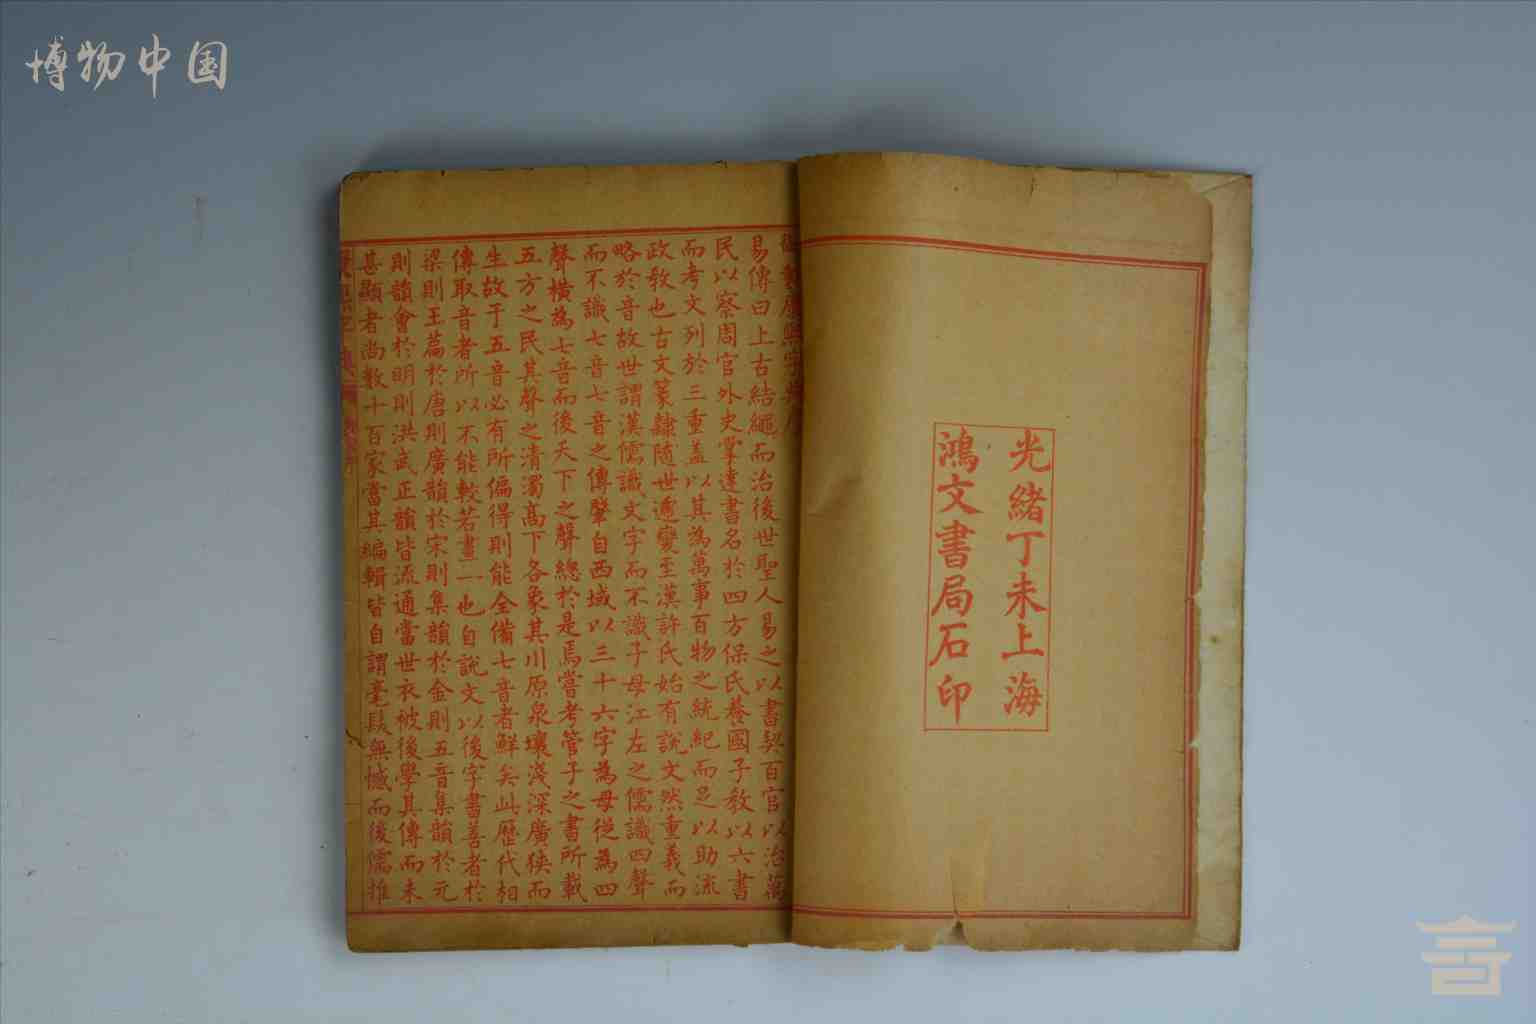 博物中国
光緒丁未上海
鴻文書局石印
御製康熙字典序
易傳曰上古結繩而治後世聖人易之以書契百官以治萬
民以察周官外史掌達書名於四方保氏養國子教以六書
而考文列於三重盖以其為萬事百物之統紀而足以助流
政教也古文篆隸随世遞變至漢許氏始有説文然重義而
略於音故世謂漢儒識文字而不識子母江左之儒識四聲
而不識七音七音之傳肇自西域以三十六字為母從為四
聲横為七音而後天下之聲總於是焉嘗考管子之書所載
五方之民其聲之清濁髙下各象其川原泉壤淺深廣狭而
生故于五音必有所偏得則能全備七音者鮮矣此歷代相
傳取音者所以不能較若畫一也自説文以後字書善者於
梁則玉篇於唐則廣韻於宋則集韻於金則五音集韻於元
則韻會於明則洪武正韻皆流通當世衣被後學其傳而未
甚顯者尚數十百家當其編輯皆自謂毫髮無憾而後儒推